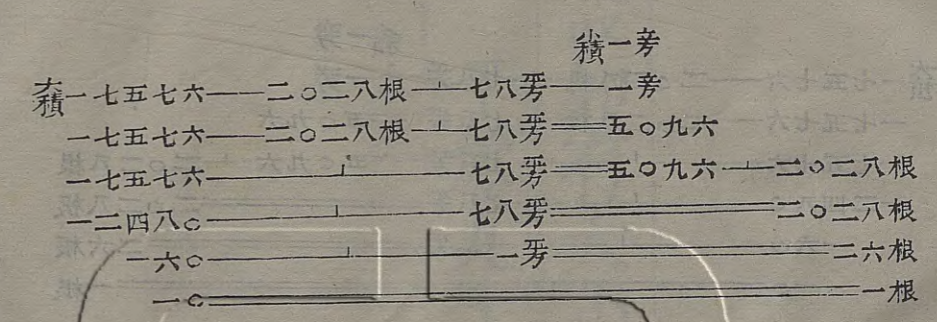 小積一立方
大積一七五七六——二〇二八根—⊥—七八平方——一立方
一七五七六——二〇二八根—⊥—七八平方══五〇九六
一七五七六—⊥—七八平方══五〇九六—⊥—二〇二八根
一二四八〇—⊥—七八平方══二〇二八根
一六〇—⊥—一平方══二六根
一〇══一根